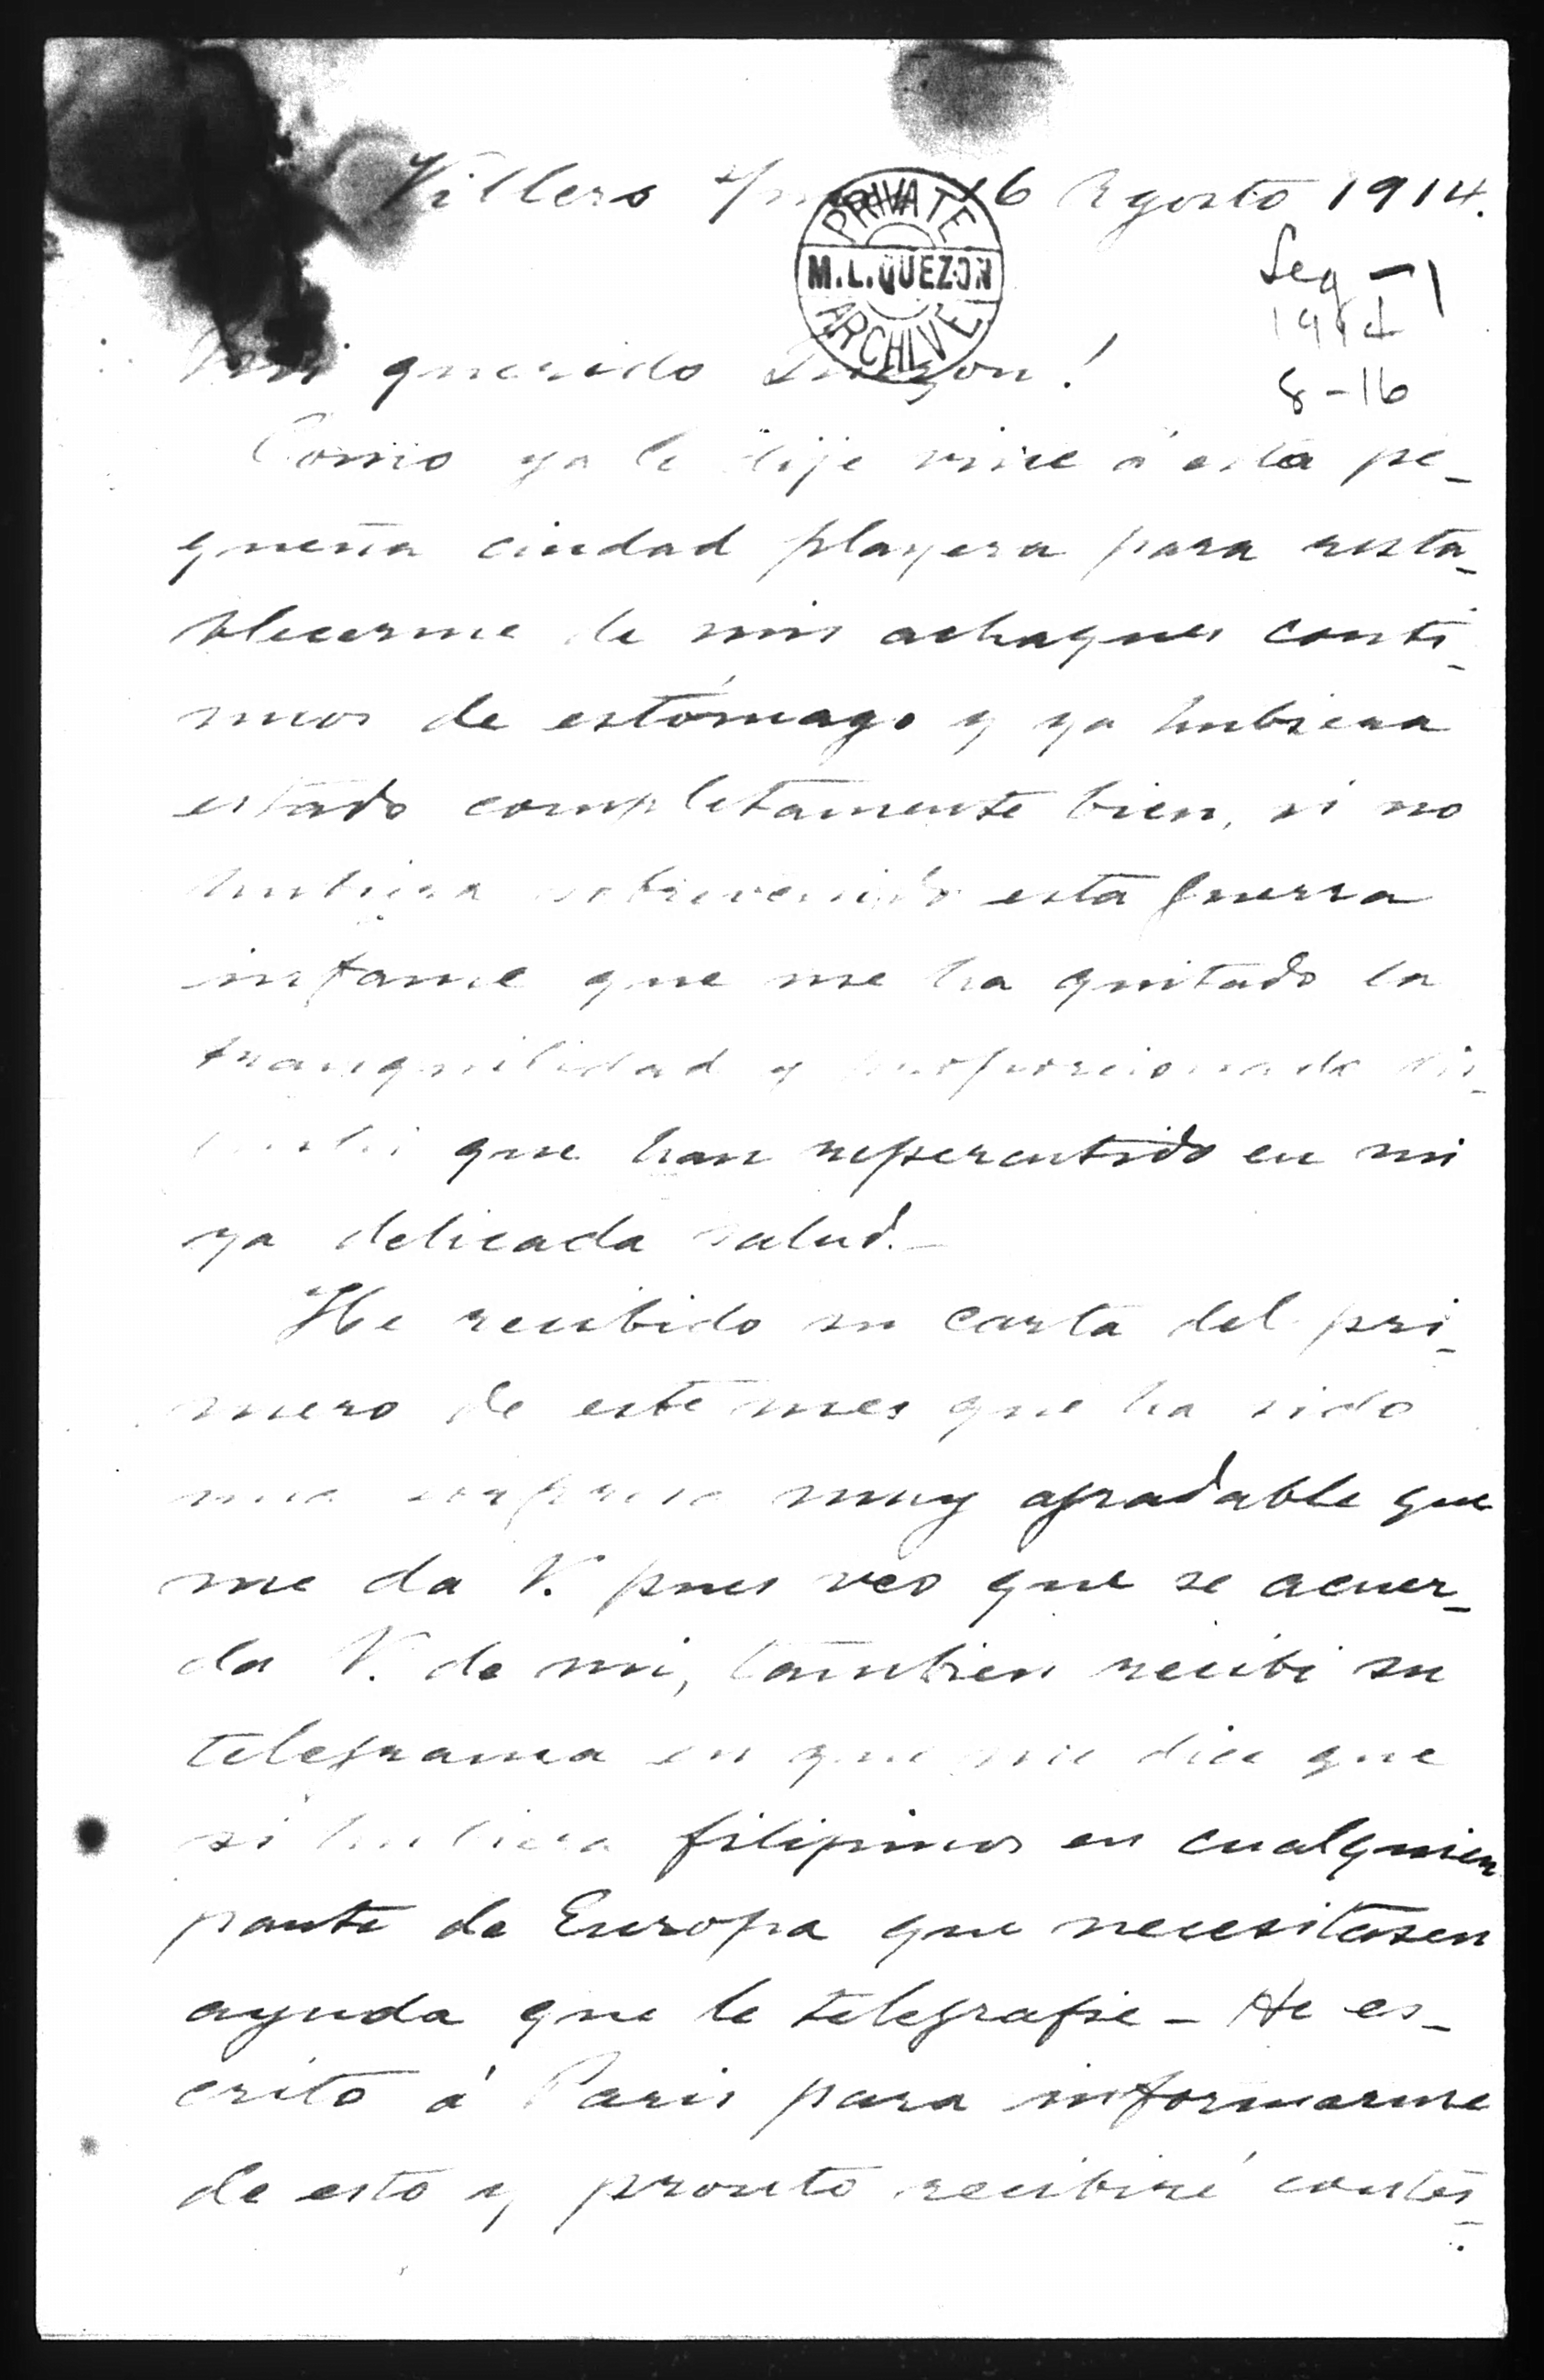 Villers s/m 16 Agosto 1914.
PRIVATE
M.L.QUEZON
ARCHIVE
Leg-1
1914
8-16
Mi querido Quezon!
Como ya le dije vine á esta pe-
queña ciudad playera para resta-
blecerme de mis achaques conti-
nuos de estómago y ya hubiera
estado completamente bien, si no
hubiera sobrevenido esta guerra
infame que me ha quitado la
tranquilidad y proporcionado dis-
que han repercutido en mi
ya delicada salud.-
He recibido su carta del pri-
mero de este mes que ha sido
una sorpresa muy agradable que
me da V. pues veo que se acuer-
da V. de mi, tambien recibi su
telegrama en que me dice que
si hubiera filipinos en cualquier
parte de Europa que necesitasen
ayuda que le telegrafie - He es-
crito á Paris para informarme
de esto y pronto recibiré contes-